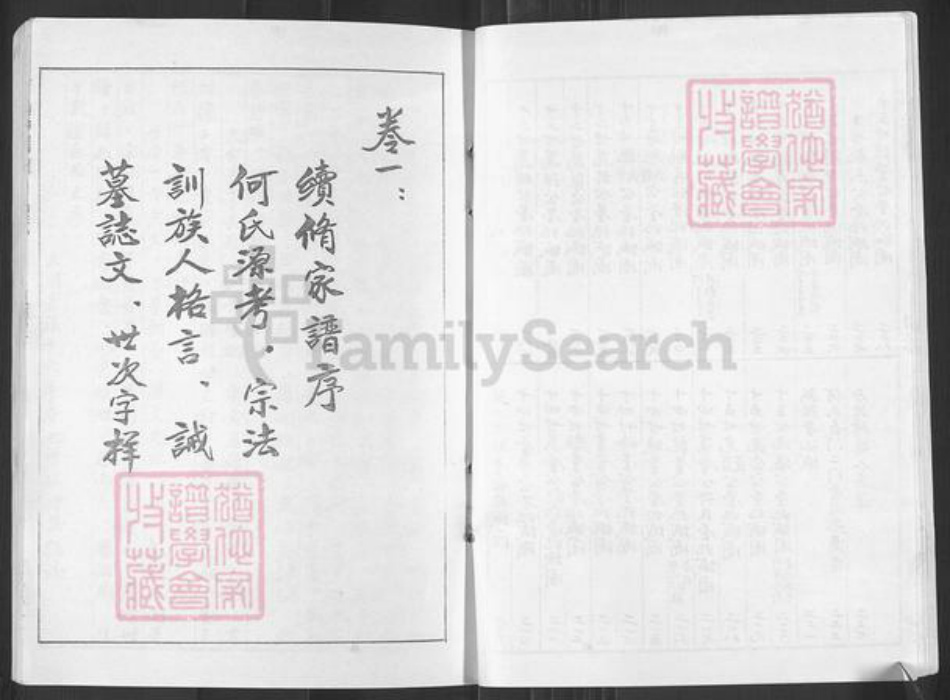 卷一：
續脩家譜序
何氏源考．宗法
訓族人格言、誡
墓誌文．世次字样
猶他家
譜學會
收藏
猶他家
譜學會
收藏
FamilySearch